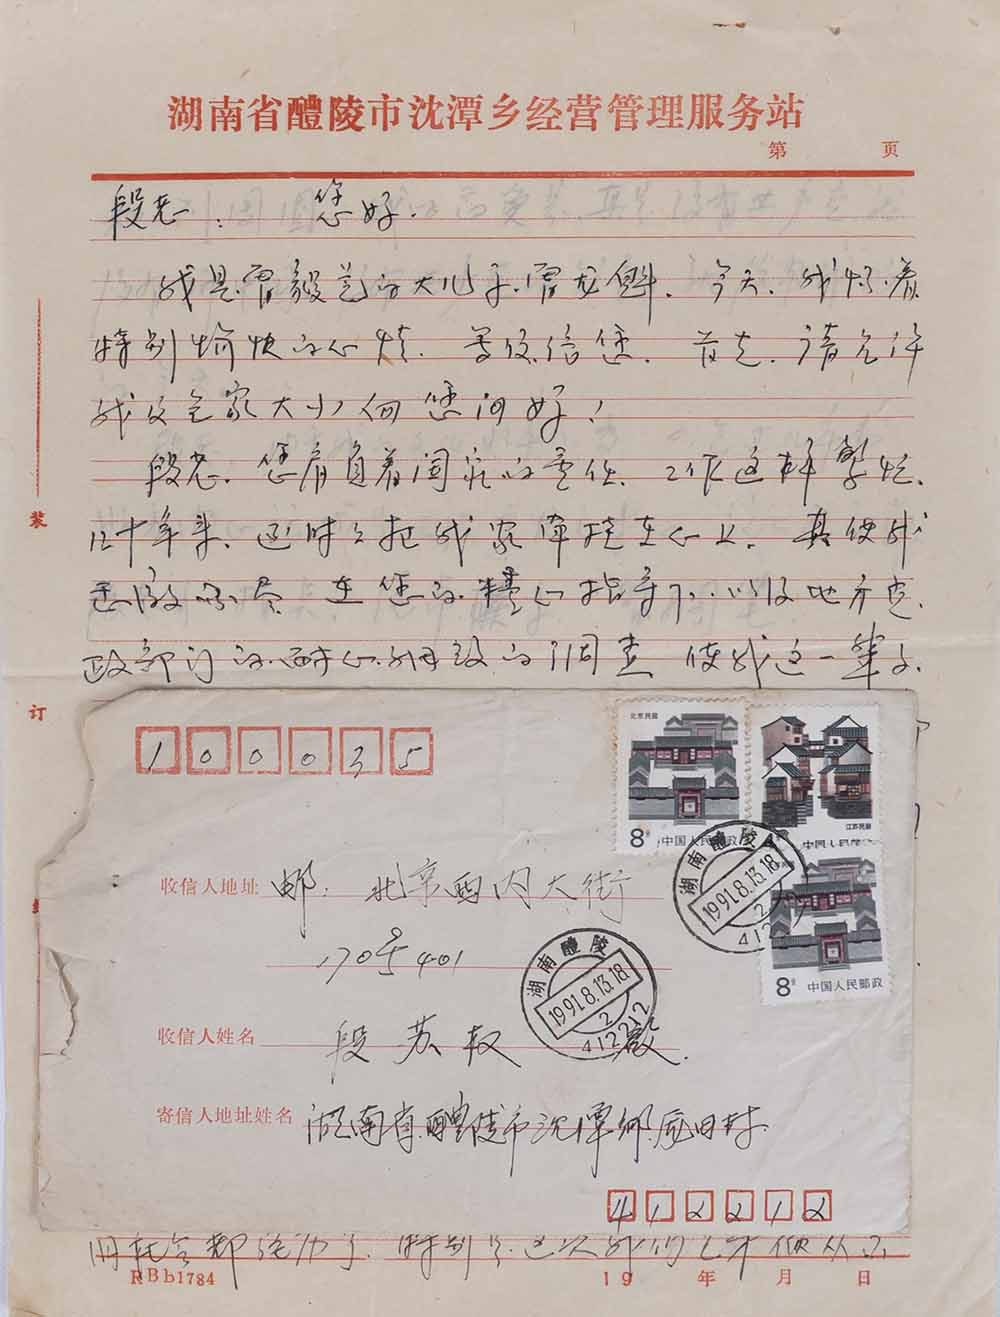 湖南省醴陵市沈潭乡经营管理服务站
第 页
段老：您好.
我是雷毅艺的大儿子.雷龙.今天.我怀着
特别愉快的心情.写信给您.首先.请允许
我及全家大小向您问好！
段老.您肩负着国家的重任.工作这样繁忙.
几十年来.还时刻把我家牵挂在心上.真使我
感激不尽 在您的精心指导下.以及地方党.
政部门的.耐心.细致的调查 使我这一辈子
装
订
线
100035
北京民居
8分
中国人民邮政
江苏民居
中国人民邮政
8分
中国人民邮政
湖南醴陵
1991.8.13.18
2
412212
湖南醴陵
1991.8.13.18
2
412212
收信人地址 邮. 北京西内大街
170号401
收信人姓名 段苏权 启.
寄信人地址姓名 湖南省醴陵市沈潭乡
412212
旧社会都经历了.特别是.这次我们
RBb1784
19 年 月 日